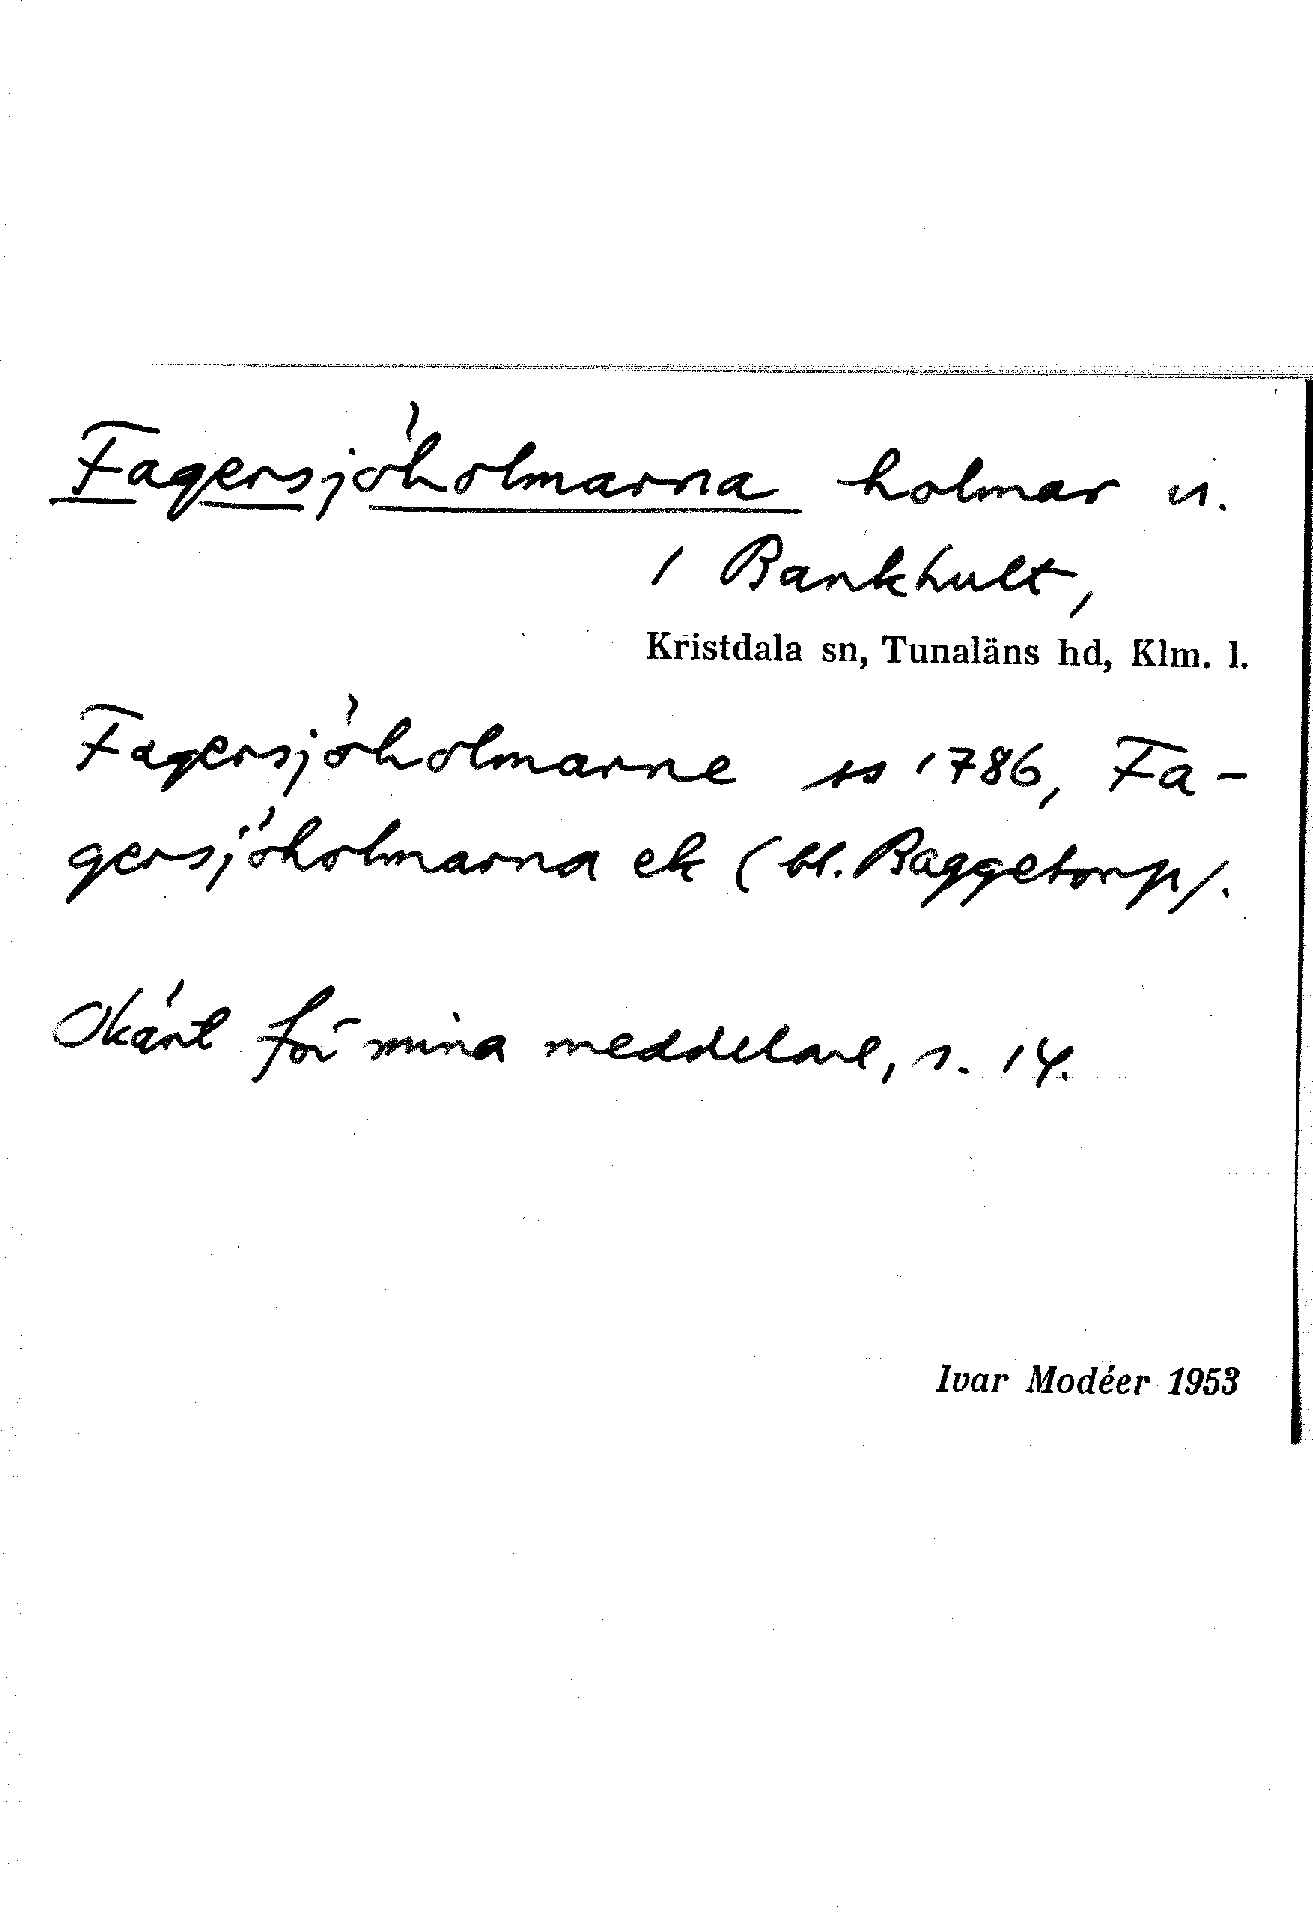 Fagersjöholmarna holmar u.
/ Bankhult,
Kristdala sn, Tunaläns hd, Klm. l.
Fagersjöholmarne ss 1786, Fa-
gersjöholmarna ek (bl. Baggetorp).
Okänt för mina meddelare, s. 14.
Ivar Modéer 1953